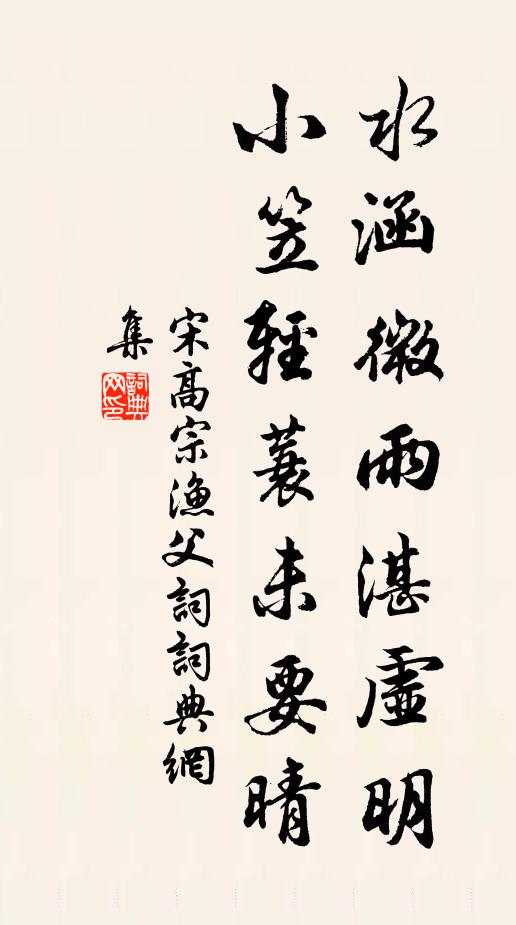 水涵微雨湛虛明
小笠輕蓑未要晴
宋高宗漁父詞詞典網
集
詞典网印